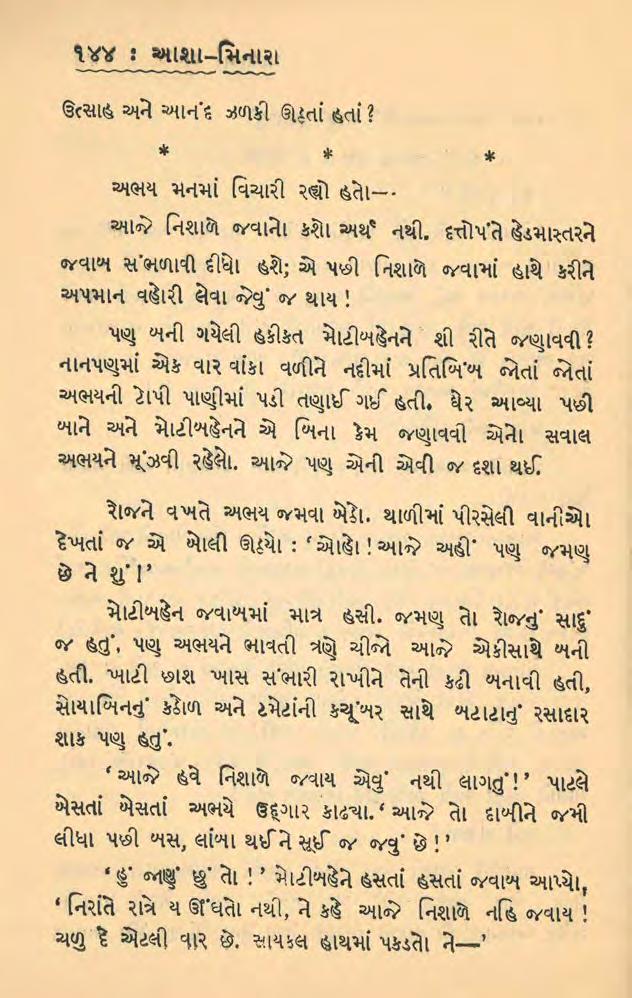 ૧૪૪ : આશા-મિનારા
ઉત્સાહ અને આનંદ ઝળકી ઊઠતાં હતાં?
* * *
અભય મનમાં વિચારી રહ્યો હતો—.
આજે નિશાળે જવાનો કશો અર્થ નથી. દત્તોપંતે હેડમાસ્તરને
જવાબ સંભળાવી દીધો હશે; એ પછી નિશાળે જવામાં હાથે કરીને
અપમાન વહોરી લેવા જેવું જ થાય!
પણ બની ગયેલી હકીકત મોટીબહેનને શી રીતે જણાવવી?
નાનપણમાં એક વાર વાંકા વળીને નદીમાં પ્રતિબિંબ જોતાં જોતાં
અભયની ટોપી પાણીમાં પડી તણાઈ ગઈ હતી. ઘેર આવ્યા પછી
બાને અને મોટીબહેનને એ બિના કેમ જણાવવી એનો સવાલ
અભયને મૂંઝવી રહેલો. આજે પણ એની એવી જ દશા થઈ.
રોજને વખતે અભય જમવા બેઠો. થાળીમાં પીરસેલી વાનીઓ
દેખતાં જ એ બોલી ઊઠ્યો : ‘ઓહો! આજે અહીં પણ જમણ
છે ને શું!’
મોટીબહેન જવાબમાં માત્ર હસી. જમણ તો રોજનું સાદું
જ હતું, પણ અભયને ભાવતી ત્રણે ચીજો આજે એકીસાથે બની
હતી. ખાટી છાશ ખાસ સંભારી રાખીને તેની કઢી બનાવી હતી,
સોયાબિનનું કઠોળ અને ટમેટાંની કચૂંબર સાથે બટાટાનું રસાદાર
શાક પણ હતું.
‘આજે હવે નિશાળે જવાય એવું નથી લાગતું!’ પાટલે
બેસતાં બેસતાં અભયે ઉદ્ગાર કાઢ્યા. ‘આજે તો દાબીને જમી
લીધા પછી બસ, લાંબા થઈને સૂઈ જ જવું છે!’
‘હું જાણું છું તો!’ મોટીબહેને હસતાં હસતાં જવાબ આપ્યો,
‘નિરાંતે રાત્રે ય ઊંઘતો નથી, ને કહે આજે નિશાળે નહિ જવાય!
ચળુ દે એટલી વાર છે. સાયકલ હાથમાં પકડતો ને—’